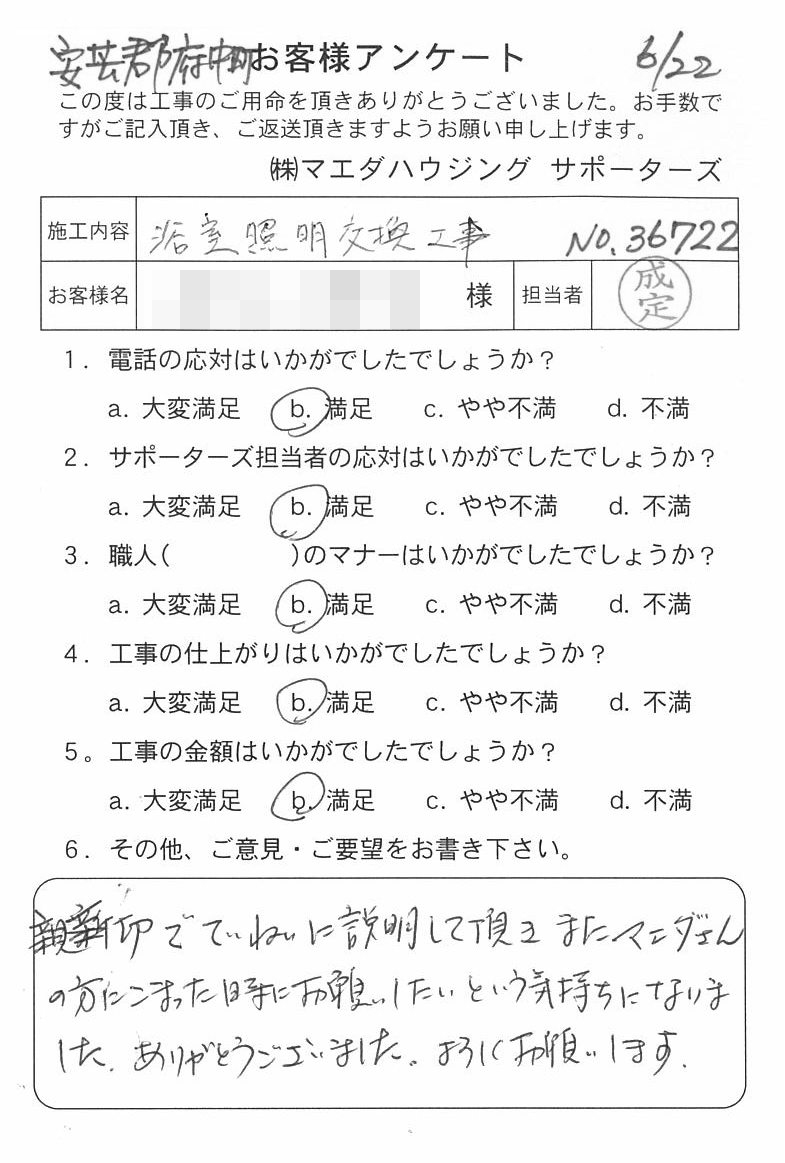 安芸郡府中町 お客様アンケート 6/22
この度は工事のご用命を頂きありがとうございました。お手数で
すがご記入頂き、ご返送頂きますようお願い申し上げます。
㈱マエダハウジング サポーターズ
施工内容 浴室照明交換工事 NO.36722
お客様名 様 担当者 成定
1. 電話の応対はいかがでしたでしょうか?
a. 大変満足 b. 満足 c. やや不満 d. 不満
2. サポーターズ担当者の応対はいかがでしたでしょうか?
a. 大変満足 b. 満足 c. やや不満 d. 不満
3. 職人( )のマナーはいかがでしたでしょうか?
a. 大変満足 b. 満足 c. やや不満 d. 不満
4. 工事の仕上がりはいかがでしたでしょうか?
a. 大変満足 b. 満足 c. やや不満 d. 不満
5。工事の金額はいかがでしたでしょうか?
a. 大変満足 b. 満足 c. やや不満 d. 不満
6. その他、ご意見・ご要望をお書き下さい。
でていねいに説明して頂き またマエダさん
の方にこまった時にお願いしたいという気持ちになりま
した。ありがとうございました。よろしくお願いします.